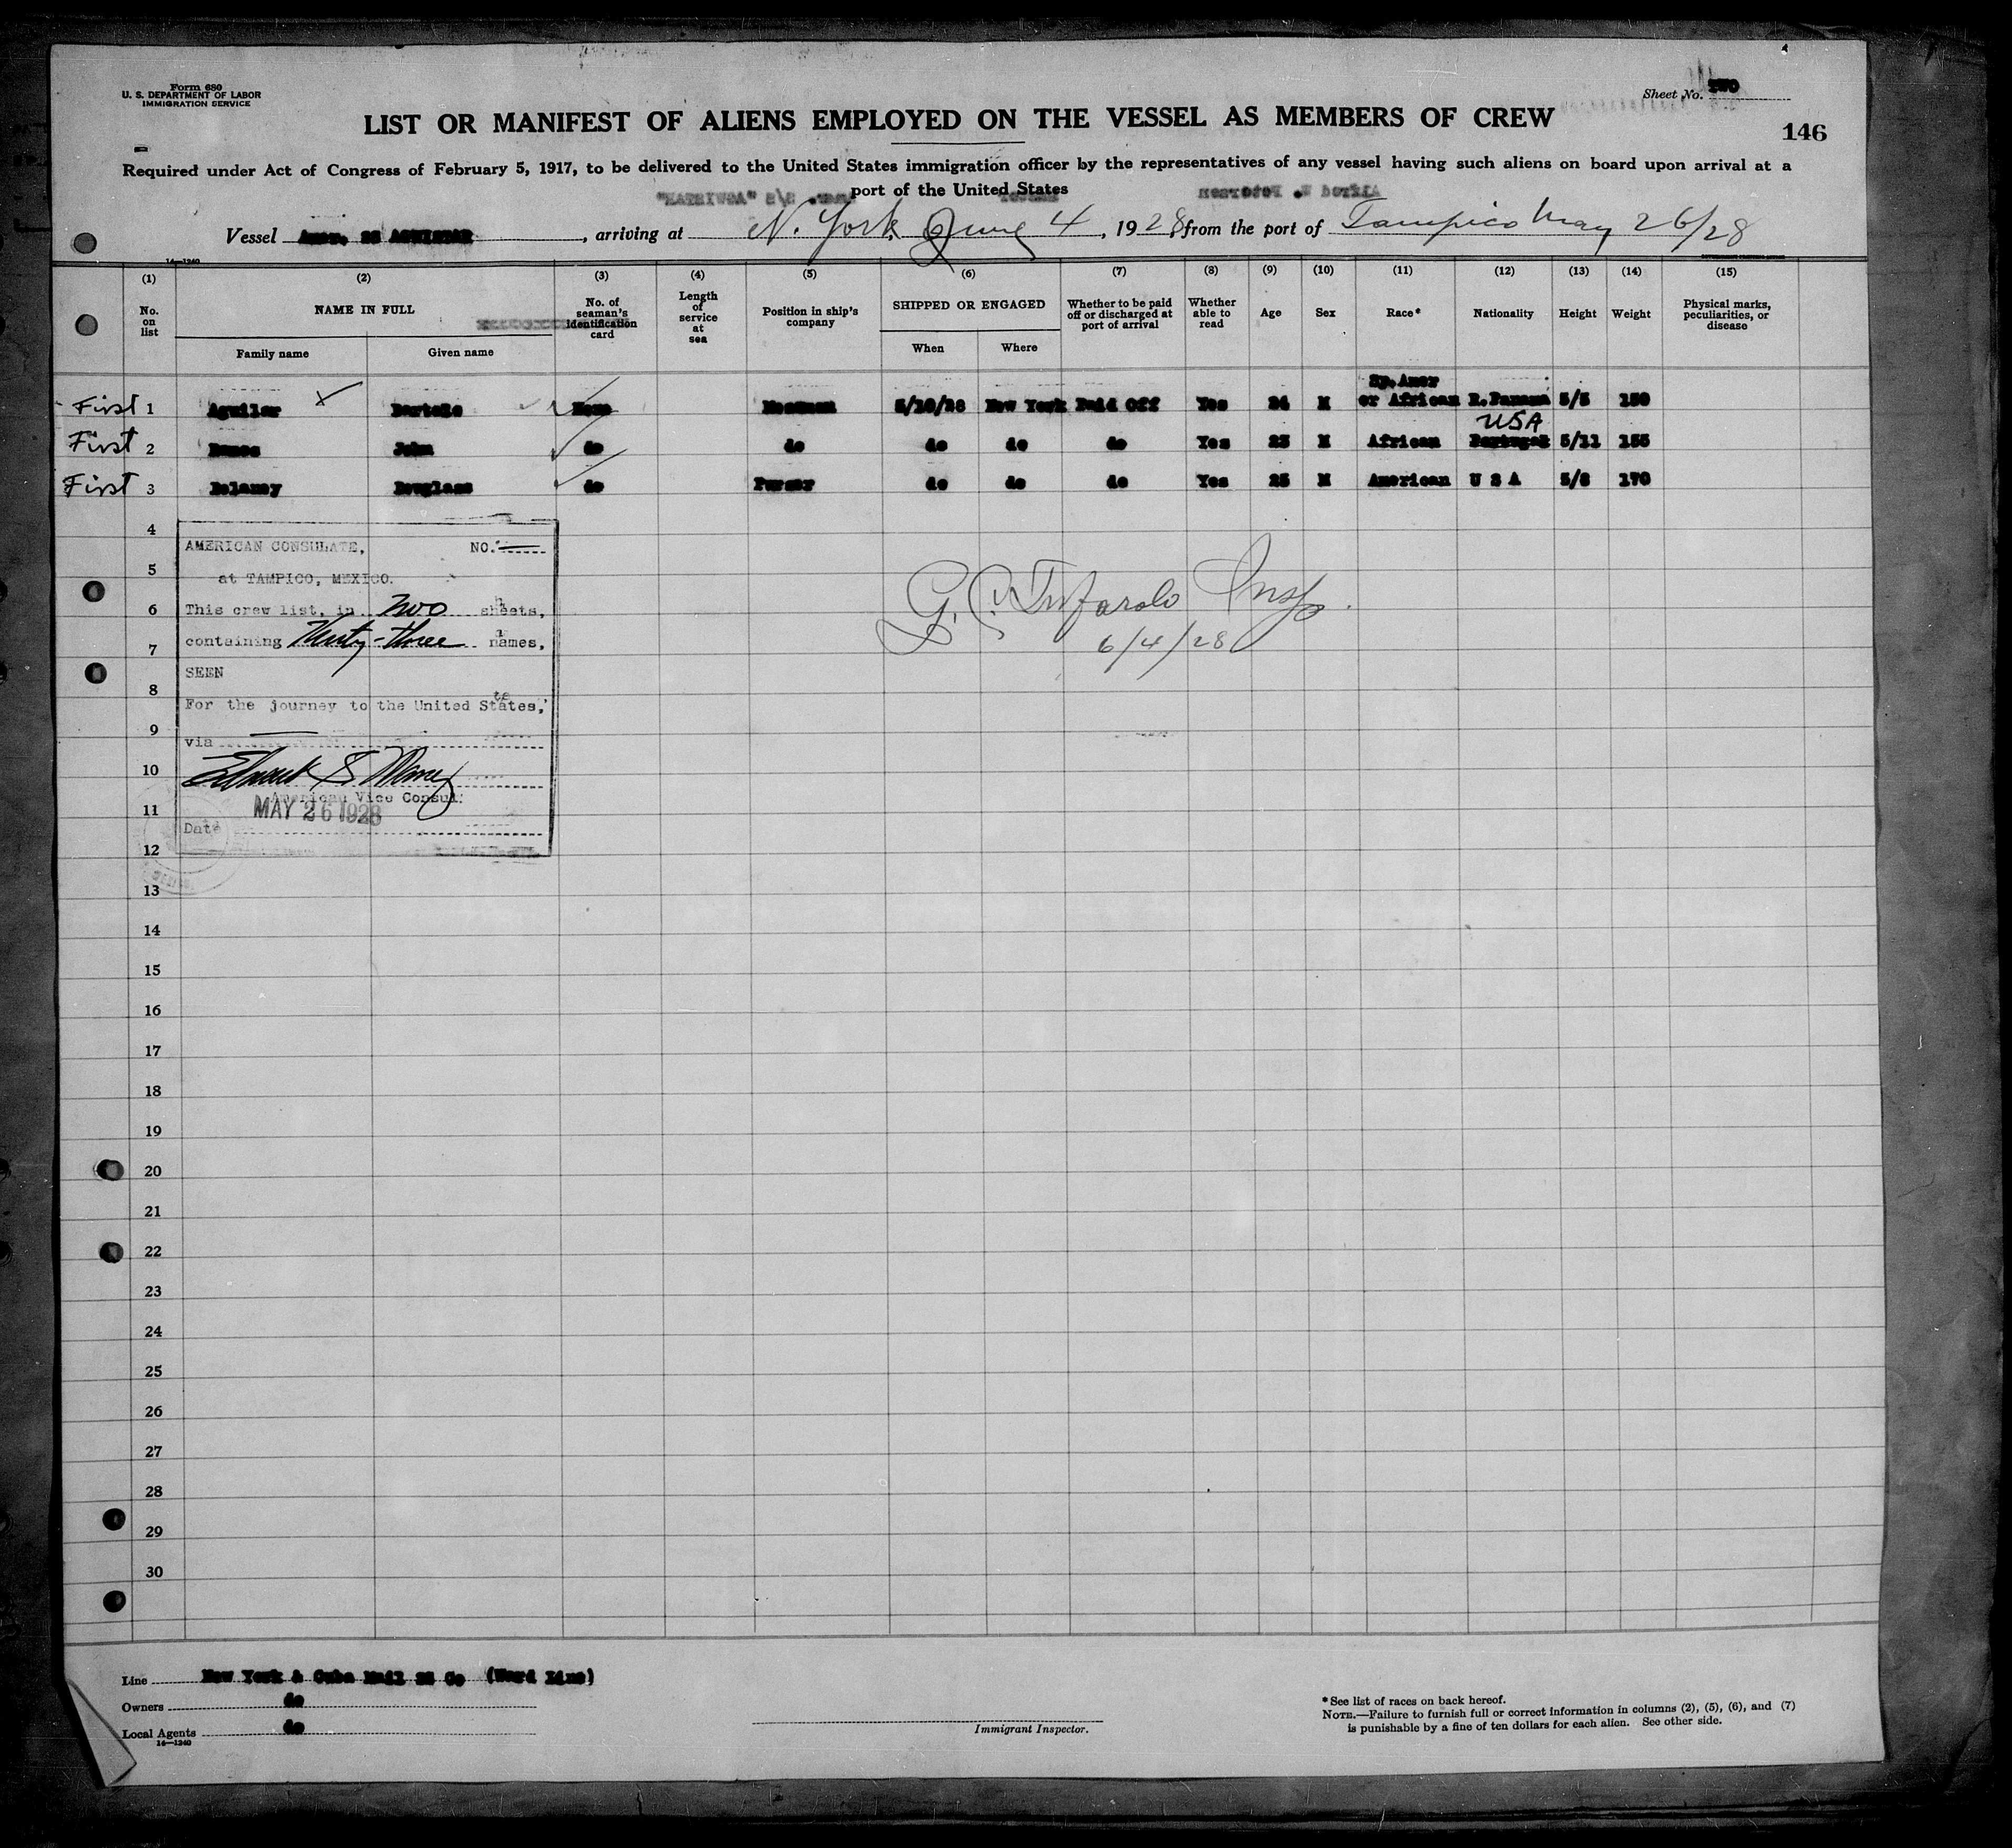 Form 680
U. S. DEPARTMENT OF LABOR
IMMIGRATION SERVICE
Sheet No. TWO
LIST OR MANIFEST OF ALIENS EMPLOYED ON THE VESSEL AS MEMBERS OF CREW
146
Required under Act of Congress of February 5, 1917, to be delivered to the United States immigration officer by the representatives of any vessel having such aliens on board upon arrival at a
port of the United States
Vessel Amer. SS AGWISTAR, arriving at N. York June 4, 1928, from the port of Tampico May 26/28
14—1240
(1) (2) (3) (4) (5) (6) (7) (8) (9) (10) (11) (12) (13) (14) (15)
No. on list NAME IN FULL No. of seaman's identification card Length of service at sea Position in ship's company SHIPPED OR ENGAGED Whether to be paid off or discharged at port of arrival Whether able to read Age Sex Race* Nationality Height Weight Physical marks, peculiarities, or disease
Family name Given name When Where
Sp. Amer
First 1 Aguilar Bartolo None Messman 5/10/28 New York Paid Off Yes 24 M or African R. Panama 5/5 150
USA
First 2 John do do do do do Yes 23 M African Portugal 5/11 155
First 3 Delaney Douglass do Purser do do do Yes 25 M American U S A 5/8 170
4
AMERICAN CONSULATE, NO. —
5
at TAMPICO, MEXICO.
6
This crew list, in Two sheets,
7
containing Thirty-three names,
SEEN
8
For the journey to the United States,
9
via —
10
American Vice Consul.
11
MAY 26 1928
Date
12
G. C. Tufarolo Insp.
6/4/28
13
14
15
16
17
18
19
20
21
22
23
24
25
26
27
28
29
30
Line New York & Cuba Mail SS Co (Ward Line)
Owners do
Local Agents do
14—1240
Immigrant Inspector.
*See list of races on back hereof.
NOTE.—Failure to furnish full or correct information in columns (2), (5), (6), and (7)
is punishable by a fine of ten dollars for each alien. See other side.